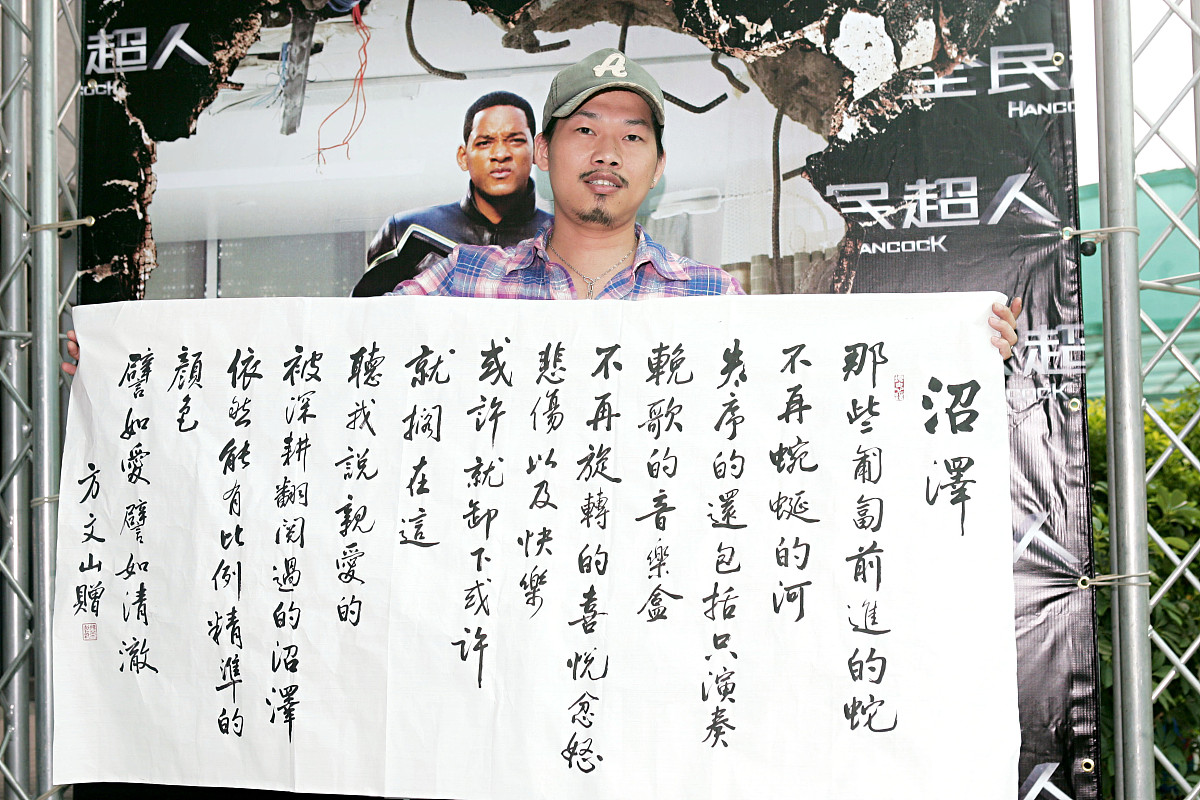 沼澤
那些匍匐前進的蛇
不再蜿蜒的河
失序的還包括只演奏
輓歌的音樂盒
不再旋轉的喜悅忿怒
悲傷以及快樂
或許就卸下或許
就擱在這
聽我說親愛的
被深耕翻閱過的沼澤
依然能有比例精準的
顏色
譬如愛譬如清澈
方文山贈
超人
COCK
全民
HANCO
民超人
ANCOCK
超
CK
人
A